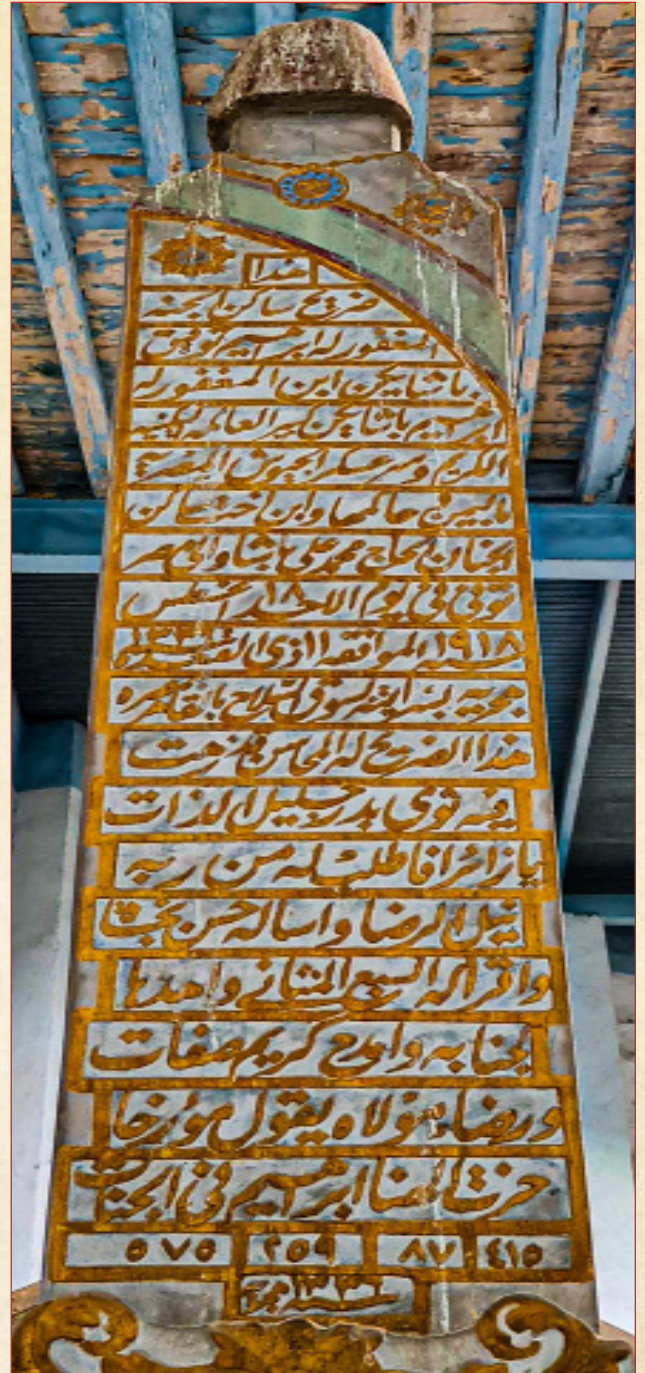 هذا
ضريح ساكن الجنه
المغفور له ابرهيم توفيق
باشا يكن ابن المغفور له
ابرهيم باشا يكن كبير العائله
الكريم وسر عسكر الجيوش المصريه
باليمن حاكمها وابن اخت ساكن
الجنان الحاج محمد على باشا والى مصر
توفى فى يوم الاحد ١٨ اغسطس
سنة ١٩١٨ الموافقه ١١ ذى القعده سنة ١٣٣٦
هجريه بسرايته بسوق السلاح بالقاهره
هذا الضريح له المحاسن قد زهت
فيه توى بدر جليل الذات
يا زائرا فاطلب له من ربه
نيل الرضا واساله حسن نجاة
واقرا له السبع المثانى واهدها
لجنابه وامدح كريم صفات
ورضاء مولاه يقول مؤرخا
حزت الهنا ابرهيم فى الجنات
٤١٥ ٨٧ ٢٥٩ ٥٧٥
سنة ١٣٣٦ هجرية